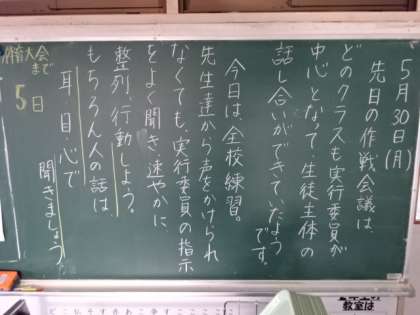 5月30日(月)
先日の作戦会議は、
どのクラスも実行委員が
中心となって、生徒主体の
話し合いができていたよう
です。
今日は、全校練習。
先生達から声をかけられ
なくても、実行委員の指示
をよく聞き、速やかに
整列、行動しよう。
もちろん人の話は
耳、目、心で
聞きましょう。
体育大会
まで
5日
教室は